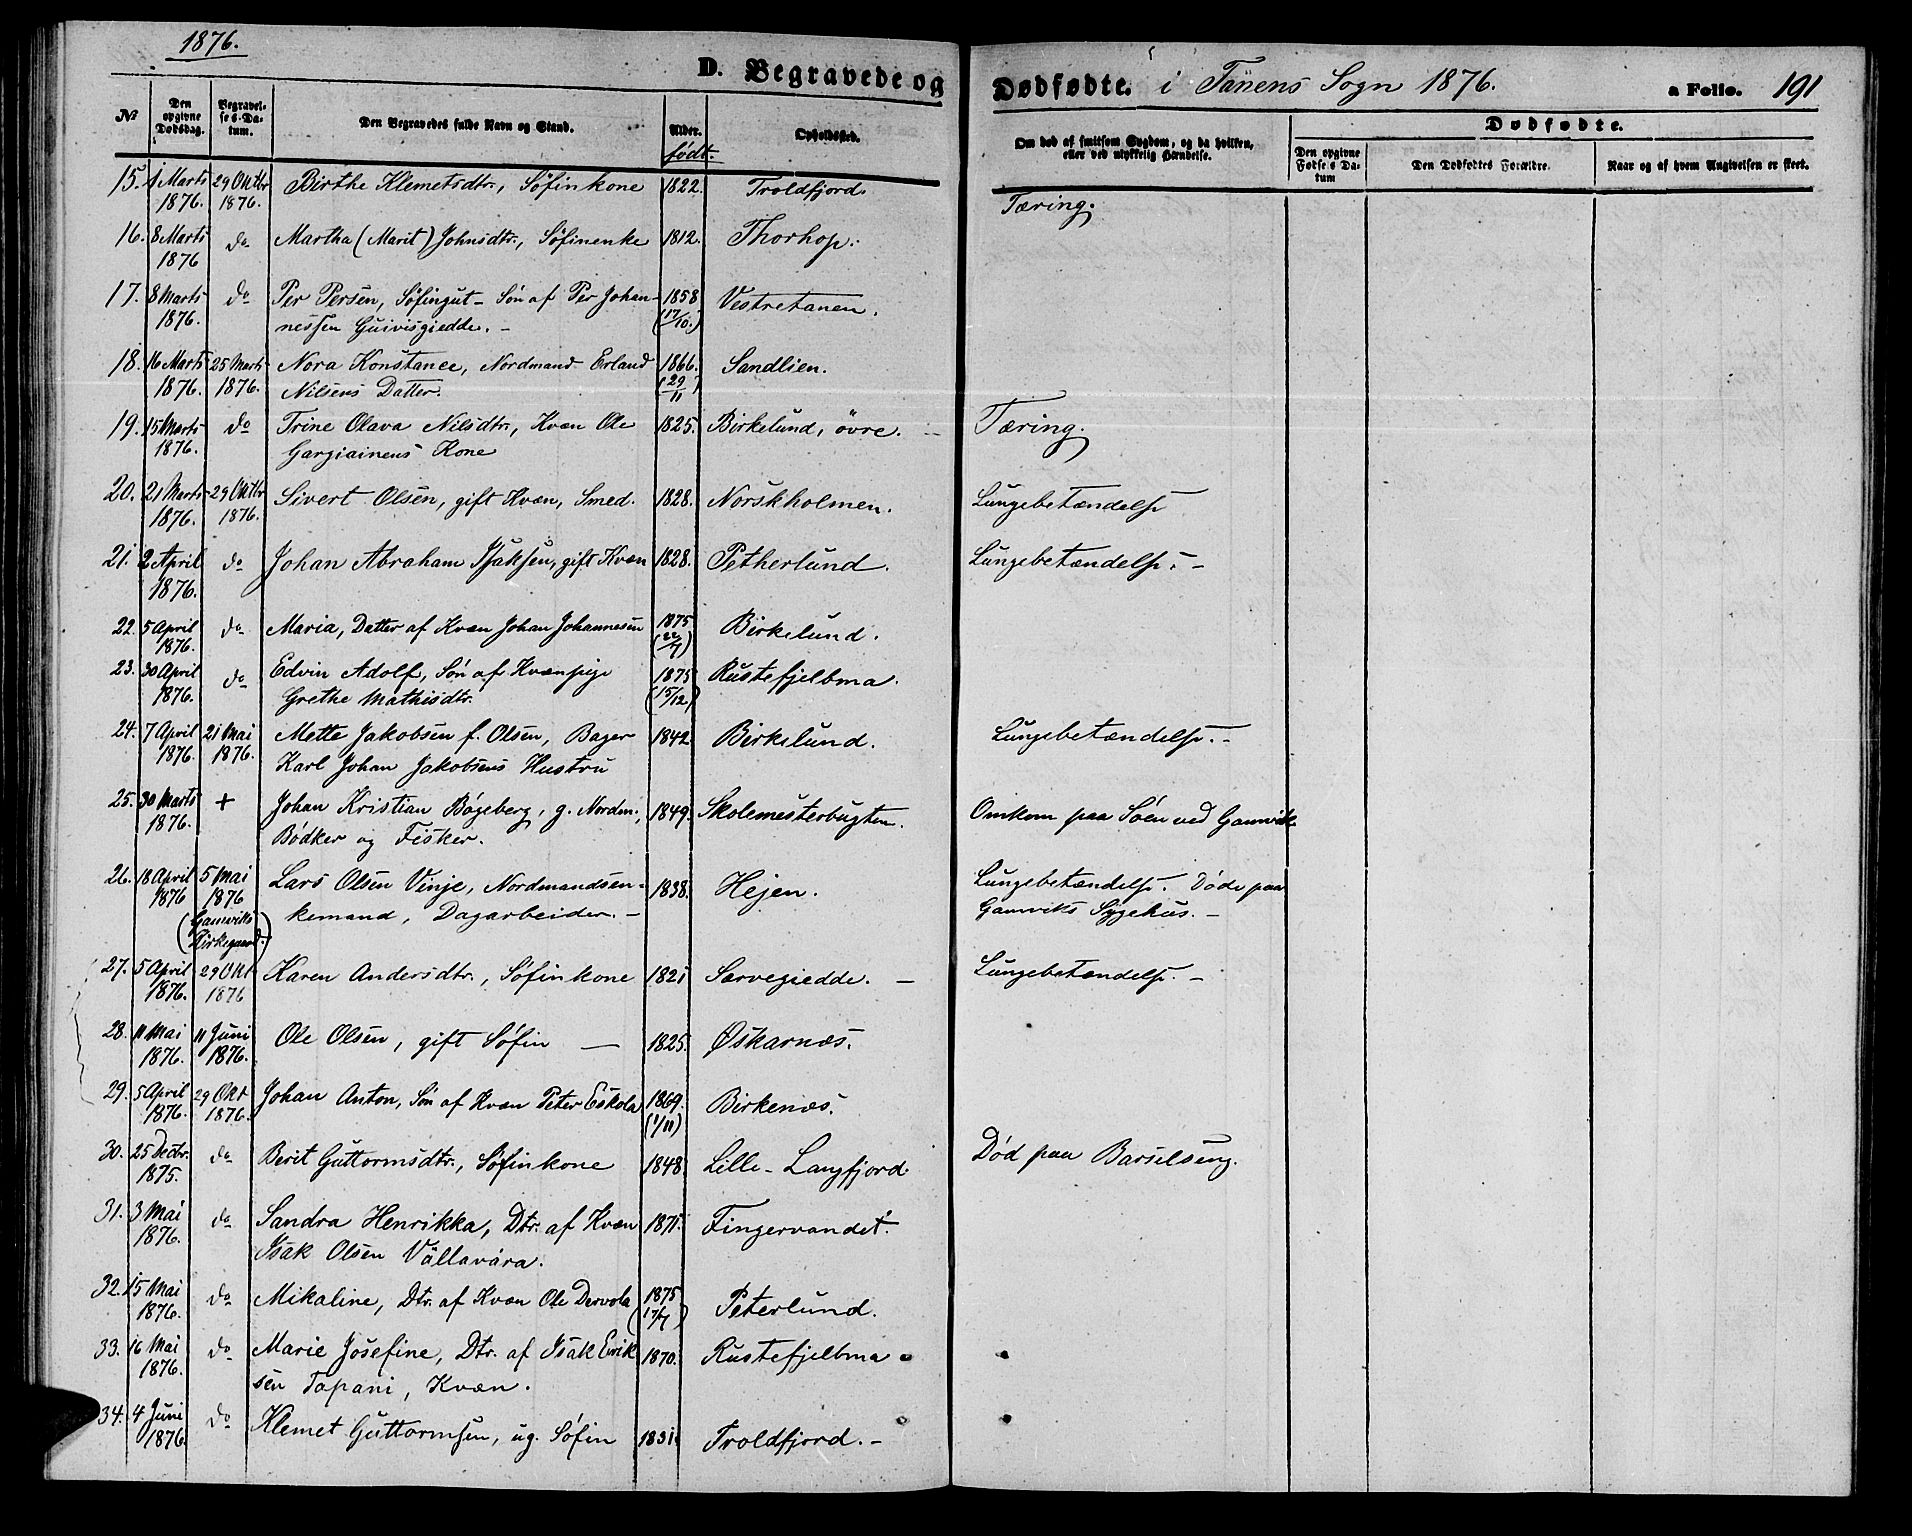 1876.
D. Begravede og Dødfødte. i Tanens Sogn 1876. a Folio. 191
№ Den opgivne Dødsdag. Begravelses-Datum. Den Begravedes fulde Navn og Stand. Alder. født. Opholdssted. Om død af smitsom Sygdom, og da hvilken, eller ved ulykkelig Hændelse. Dødfødte. Den opgivne Fødsels Datum Den Dødfødtes Forældre. Naar og af hvem Angivelsen er skeet.
15. 1 Marts 29 Oktbr Birthe Klemetsdtr., Søfinkone 1822. Troldfjord Tæring.
1876. 1876.
16. 8 Marts do Martha (Marit) Johnsdtr., Søfinenke 1812. Thorhop.
1876
17. 8 Marts do Per Persen, Søfingut - Søn af Per Johan- 1858 Vestretanen.
1876. nessen Guivisgiedde. - (17/10.)
18. 16 Marts 25 Marts Nora Konstance, Nordmand Erland 1866. Sandlien.
1876. 1876. Nilsens Datter. (29/11)
19. 15 Marts do Trine Olava Nilsdtr., Kvæn Ole 1825. Birkelund, øvre. - Tæring.
1876. Gargiainens Kone
20. 21 Marts 29 Oktbr Sivert Olsen, gift Kvæn, Smed. 1828. Norskholmen. Lungebetændelse
1876. 1876.
21. 2 April do Johan Abraham Isaksen, gift Kvæn 1828. Petherlund. Lungebetændelse. -
1876.
22. 5 April do Maria, Datter af Kvæn Johan Johannesen 1875 Birkelund.
1876. (22/7)
23. 30 April do Edvin Adolf, Søn af Kvænpige 1875 Rustefjelbma.
1876. Grethe Mathisdtr. (15/12)
24. 7 April 21 Mai Mette Jakobsen f. Olsen, Bager 1842 Birkelund. Lungebetændelse. -
1876. 1876. Karl Johan Jakobsens Hustru
25. 30 Marts + Johan Kristian Bøgeberg, g. Nordm., 1849. Skolemesterbugten. Omkom paa Søen ved Gamvik
1876. Bødker og Fisker.
26. 18 April 5 Mai Lars Olsen Vinje, Nordmandsen- 1838. Hejen. Lungebetændelse. Døde paa
1876 1876 kemand, Dagarbeider. - Gamviks Sygehus. -
(Gamviks Kirkegaard.)
27. 5 April 29 Okt Karen Andersdtr., Søfinkone 1821 Sarvegiedde. - Lungebetændelse. -
1876. 1876
28. 11 Mai 11 Juni Ole Olsen, gift Søfin - 1825. Øskarnæs.
1876. 1876.
29. 5 April 29 Okt Johan Anton, Søn af Kvæn Peter Eskola 1869. Birkenæs.
1876. 1876. (1/11)
30. 25 Decbr. do Berit Guttormsdtr., Søfinkone 1848 Lille-Langfjord Død paa Barselseng.
1875.
31. 3 Mai do Sandra Henrikka, Dtr. af Kvæn 1871. Fingervandet.
1876. Isak Olsen Vällavåra.
32. 15 Mai do Mikaline, Dtr. af Kvæn Ole Dervola 1875 Peterlund.
1876. (17/7)
33. 16 Mai do Marie Josefine, Dtr. af Isak Eirik 1870. Rustefjelbma
1876. sen Tapani, Kvæn.
34. 4 Juni do Klemet Guttormsen, ug. Søfin 1831. Troldfjord. -
1876.